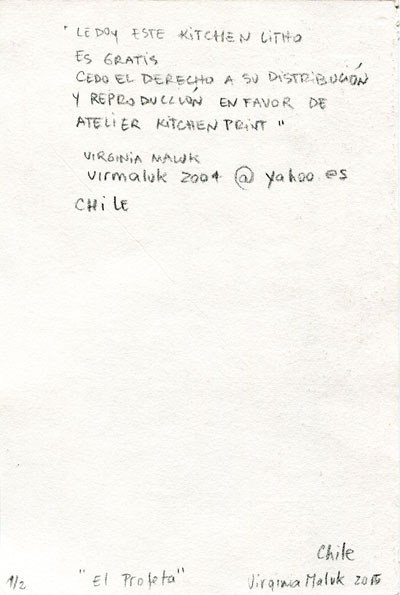 "LE DOY ESTE KITCHEN LITHO
ES GRATIS
CEDO EL DERECHO A SU DISTRIBUCIÓN
Y REPRODUCCIÓN EN FAVOR DE
ATELIER KITCHEN PRINT"
VIRGINIA MALUK
virmaluk 2004 @ yahoo.es
CHILE
Chile
1/2 "El Profeta" Virginia Maluk